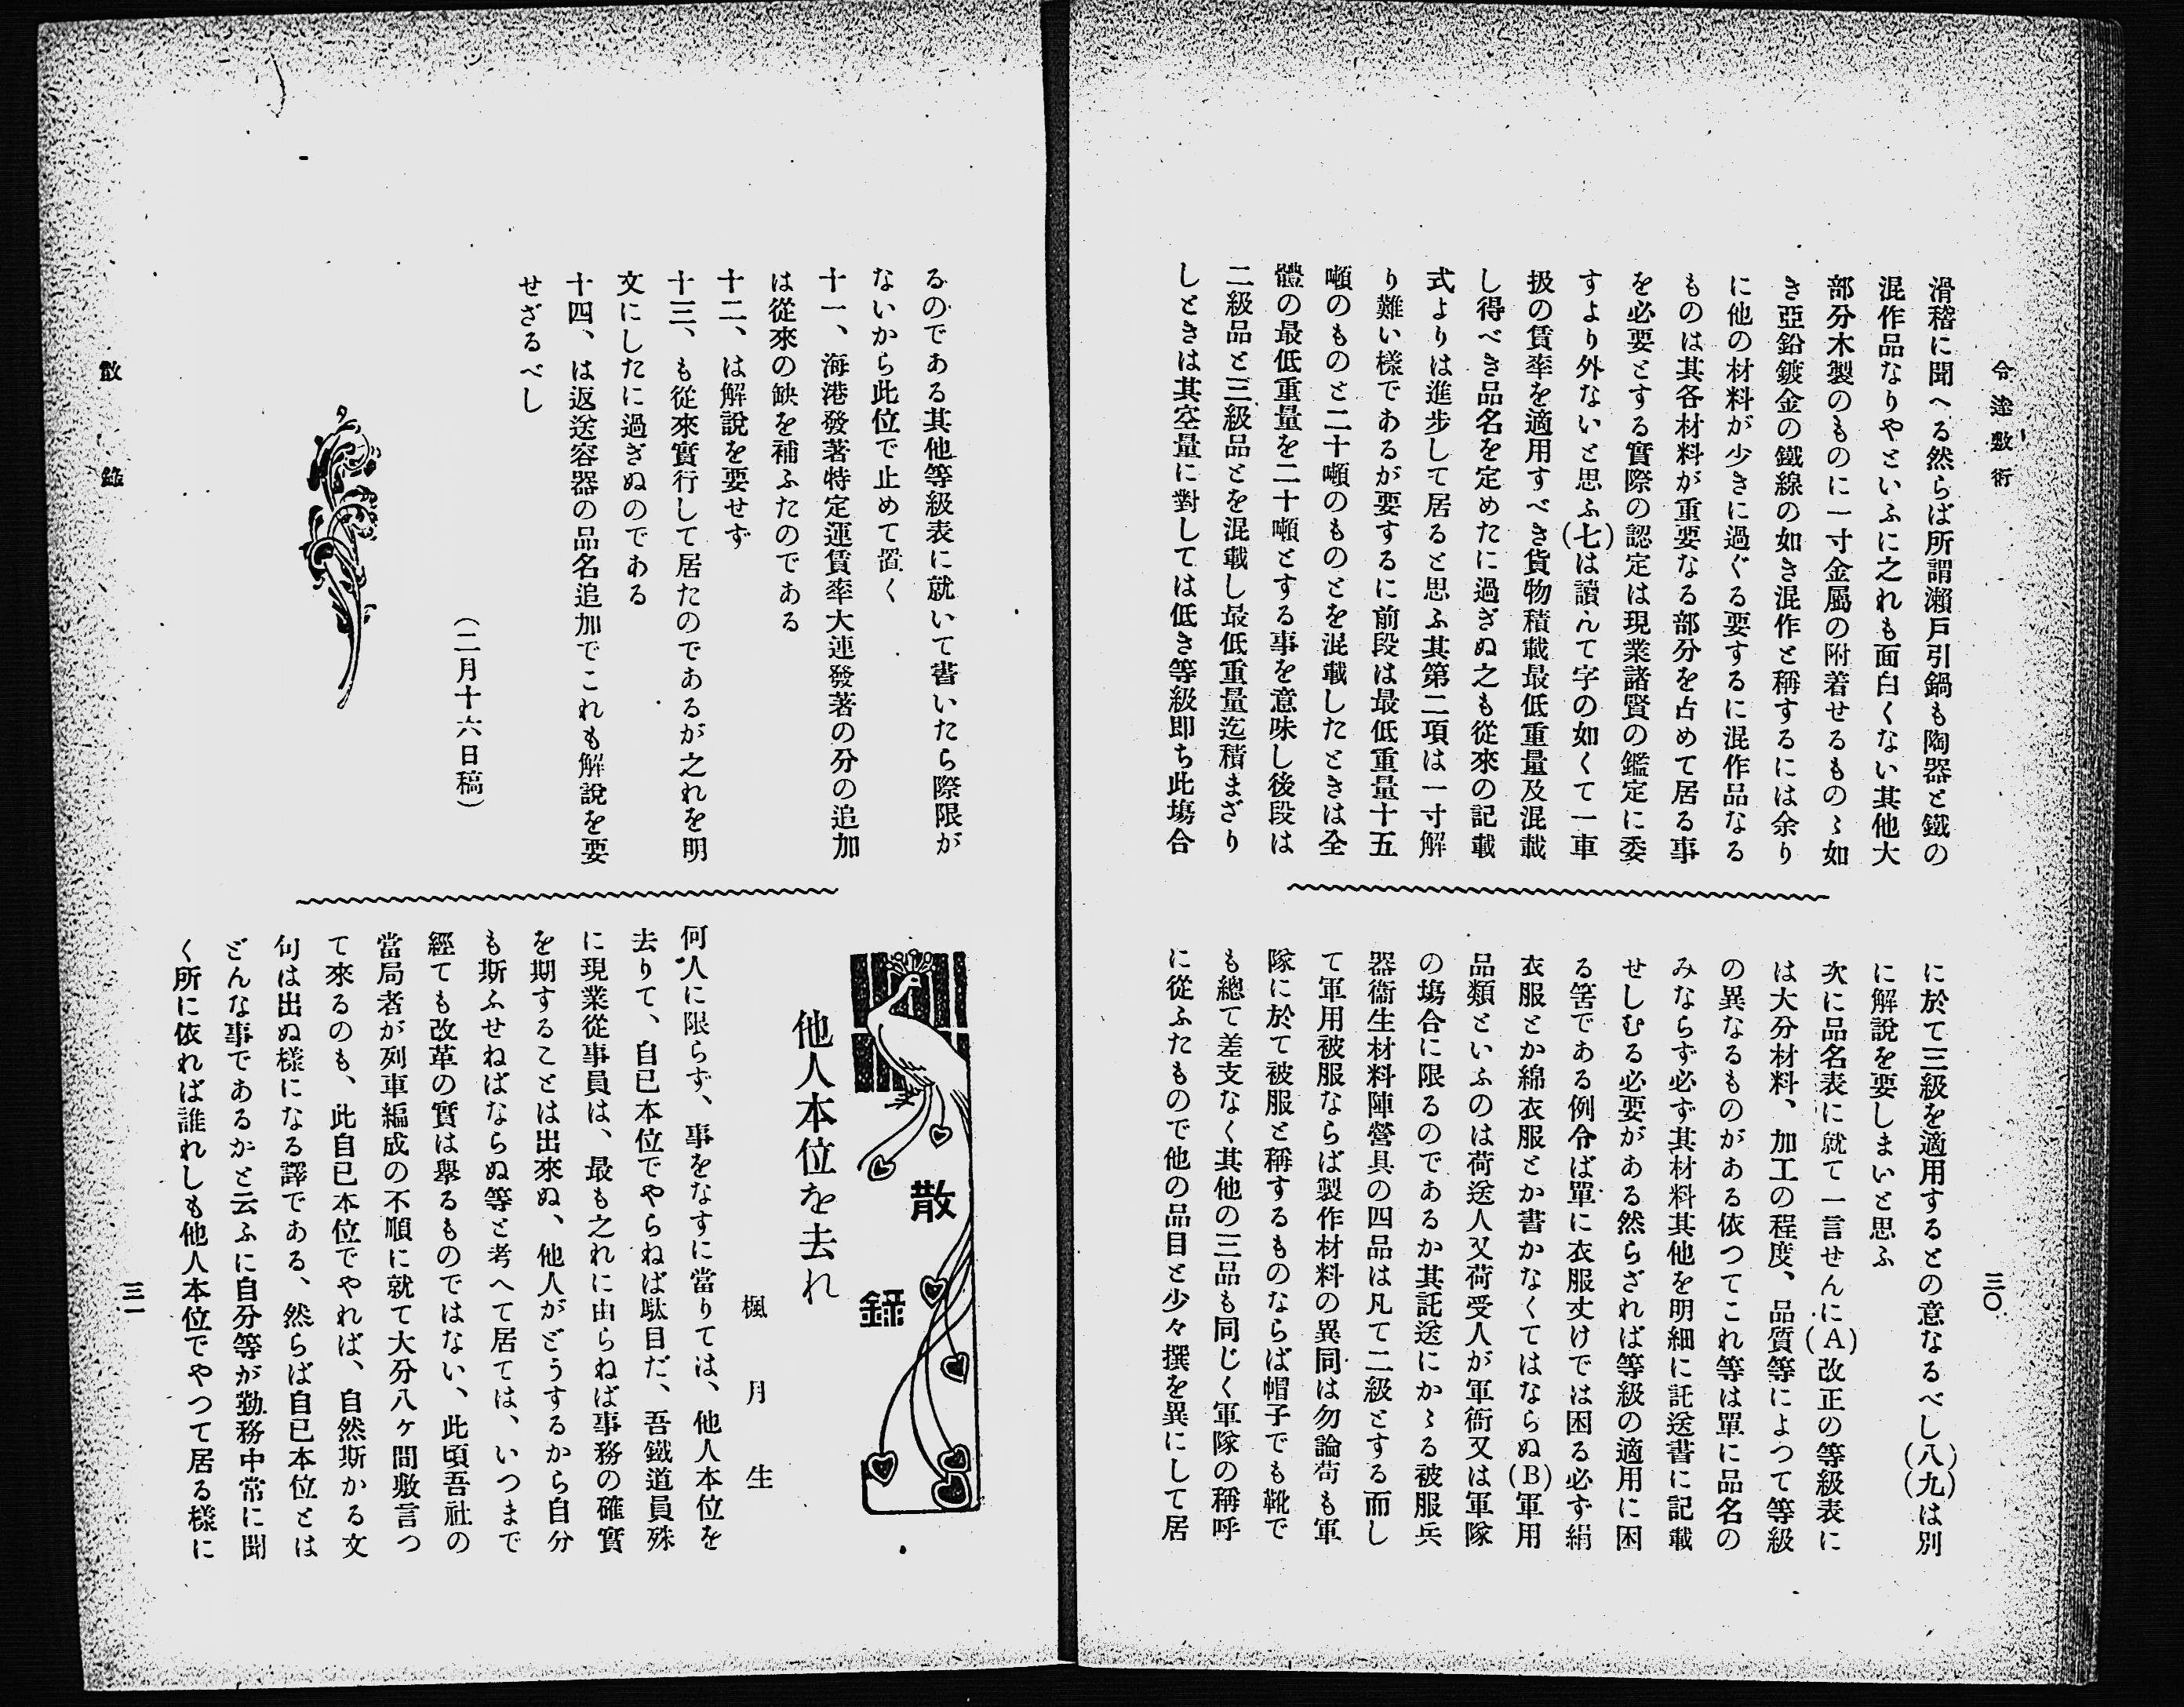 令達敷衍
三〇
滑稽に聞へる然らば所謂瀬戸引鍋も陶器と鐵の
混作品なりやといふに之れも面白くない其他大
部分木製のものに一寸金屬の附着せるものゝ如
き亞鉛鍍金の鐵線の如き混作と稱するには余り
に他の材料が少きに過ぐる要するに混作品なる
ものは其各材料が重要なる部分を占めて居る事
を必要とする實際の認定は現業諸賢の鑑定に委
すより外ないと思ふ(七)は讀んて字の如くて一車
扱の賃率を適用すべき貨物積載最低重量及混載
し得べき品名を定めたに過ぎぬ之も從來の記載
式よりは進步して居ると思ふ其第二項は一寸解
り難い樣であるが要するに前段は最低重量十五
噸のものと二十噸のものとを混載したときは全
體の最低重量を二十噸とする事を意味し後段は
二級品と三級品とを混載し最低重量迄積まざり
しときは其空量に對しては低き等級即ち此塲合
に於て三級を適用するとの意なるべし(八)(九)は別
に解說を要しまいと思ふ
次に品名表に就て一言せんに(A)改正の等級表に
は大分材料、加工の程度、品質等によつて等級
の異なるものがある依つてこれ等は單に品名の
みならず必ず其材料其他を明細に託送書に記載
せしむる必要がある然らざれば等級の適用に困
る筈である例令ば單に衣服丈けでは困る必ず絹
衣服とか綿衣服とか書かなくてはならぬ(B)軍用
品類といふのは荷送人又荷受人が軍衙又は軍隊
の塲合に限るのであるか其託送にかゝる被服兵
器衞生材料陣營具の四品は凡て二級とする而し
て軍用被服ならば製作材料の異同は勿論苟も軍
隊に於て被服と稱するものならば帽子でも靴で
も總て差支なく其他の三品も同じく軍隊の稱呼
に從ふたもので他の品目と少々撰を異にして居
るのである其他等級表に就いて書いたら際限が
ないから此位で止めて置く
十一、海港發著特定運賃率大連發著の分の追加
は從來の缺を補ふたのである
十二、は解說を要せず
十三、も從來實行して居たのであるが之れを明
文にしたに過ぎぬのである
十四、は返送容器の品名追加でこれも解說を要
せざるべし
(二月十六日稿)
散錄
他人本位を去れ
楓月生
何人に限らず、事をなすに當りては、他人本位を
去りて、自已本位でやらねば駄目だ、吾鐵道員殊
に現業從事員は、最も之れに由らねば事務の確實
を期することは出來ぬ、他人がどうするから自分
も斯ふせねばならぬ等と考へて居ては、いつまで
經ても改革の實は擧るものではない、此頃吾社の
當局者が列車編成の不順に就て大分八ヶ間敷言つ
て來るのも、此自已本位でやれば、自然斯かる文
句は出ぬ樣になる譯である、然らば自已本位とは
どんな事であるかと云ふに自分等が勤務中常に聞
く所に依れば誰れしも他人本位でやつて居る樣に
散錄
三一